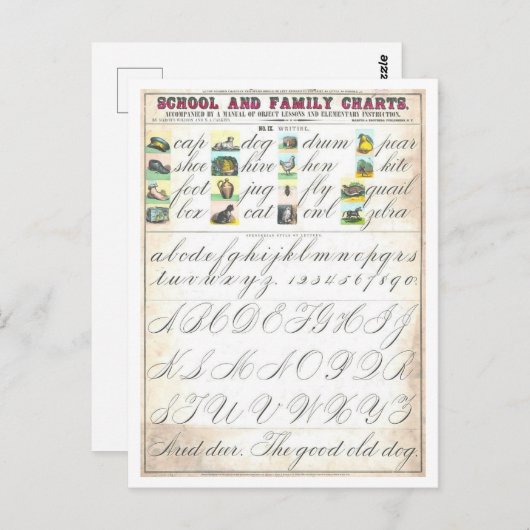 SCHOOL AND FAMILY CHARTS.
ACCOMPANIED BY A MANUAL OF OBJECT LESSONS AND ELEMENTARY INSTRUCTION.
BY MARCIUS WILLSON AND N. A. CALKINS. HARPER & BROTHERS PUBLISHERS, N.Y.
NO. IX. WRITING.
cap dog drum pear
shoe hive hen kite
foot jug fly quail
box cat owl zebra
SPENCERIAN STYLE OF LETTERS.
abcdefghijklmnopqrs
tuvwxyz. 1234567890.
ABCDEFGHIJ
KLMNOPQR
STUVWXYZ
A red deer. The good old dog.